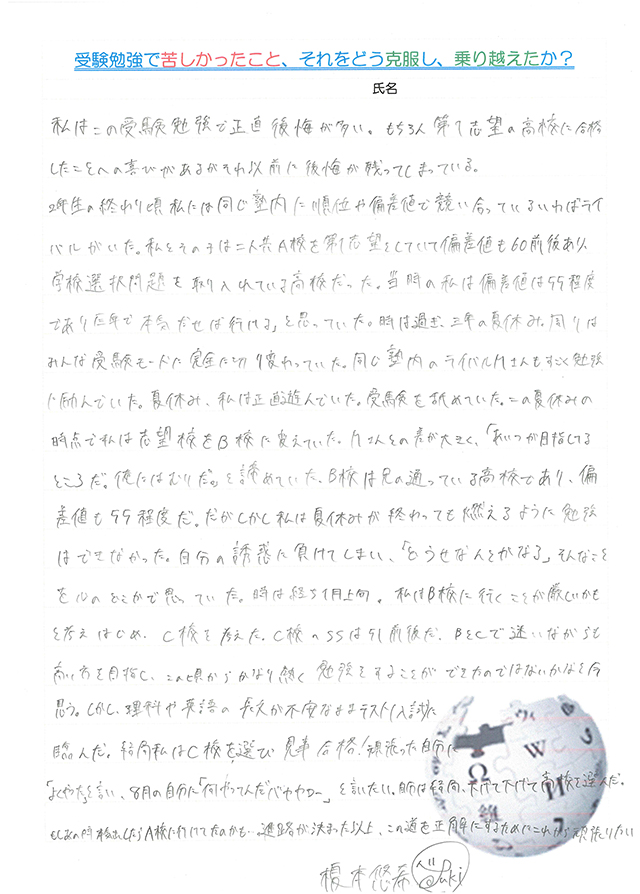 受験勉強で苦しかったこと、それをどう克服し、乗り越えたか？
氏名
私はこの受験勉強で正直後悔が多い。もちろん第1志望の高校に合格
したことへの喜びがあるがそれ以前に後悔が残ってしまっている。
2年生の終わり頃私には同じ塾内に順位や偏差値で競い合っているいわばライ
バルがいた。私とその子は二人共A校を第1志望としていて偏差値も60前後あり、
学校選択問題を取り入れている高校だった。当時の私は偏差値は55程度
であり「三年で本気だせば行ける」と思っていた。時は過ぎ、三年の夏休み。周りは
みんな受験モードに完全に切り変わっていた。同じ塾内のライバルMさんもすごく勉強
に励んでいた。夏休み、私は正直遊んでいた。受験を舐めていた。この夏休みの
時点で私は志望校をB校に変えていた。Mさんとの差が大きく、「あいつが目指してる
ところだ。俺にはむりだ。」と諦めていた。B校は兄の通っている高校であり、偏
差値も55程度だ。だがしかし私は夏休みが終わっても燃えるように勉強
はできなかった。自分の誘惑に負けてしまい、「どうせなんとかなる」そんなこと
を心のどこかで思っていた。時は経ち1月上旬。私はB校に行くことが厳しいかも
と考えはじめ、C校を考えた。C校のSSは51前後だ。BとCで迷いながらも
高い方を目指し、この頃からかなり熱く勉強をすることができたのではないかなと今
思う。しかし、理科や英語の長文が不安なままテスト(入試)に
臨んだ。結局私はC校を選び見事合格！頑張った自分に
「よくやった」と言い、8月の自分に「何やってんだバカヤロー」と言いたい。私は結局、下げて下げて高校を選んだ。
もしあの時 A校に行けてたのかも…進路が決まった以上、この道を正解にするためにこれから頑張りたい
榎本悠希
W
Ω
維